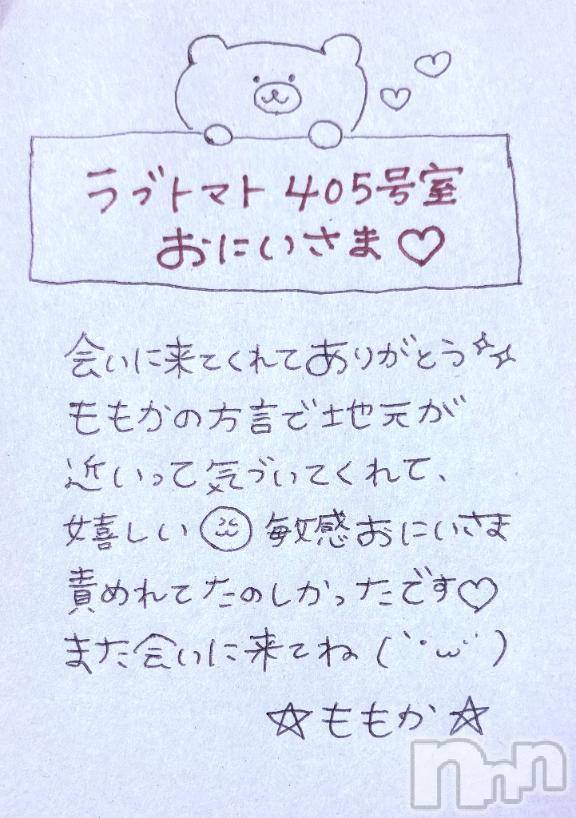 ラブトマト 405号室
おにいさま♡
会いに来てくれてありがとう
ももかの方言で地元が
近いって気づいてくれて、
嬉しい 敏感おにいさま
責めれてたのしかったです♡
また会いに来てね(`･ω･´)
☆ももか☆
nnn